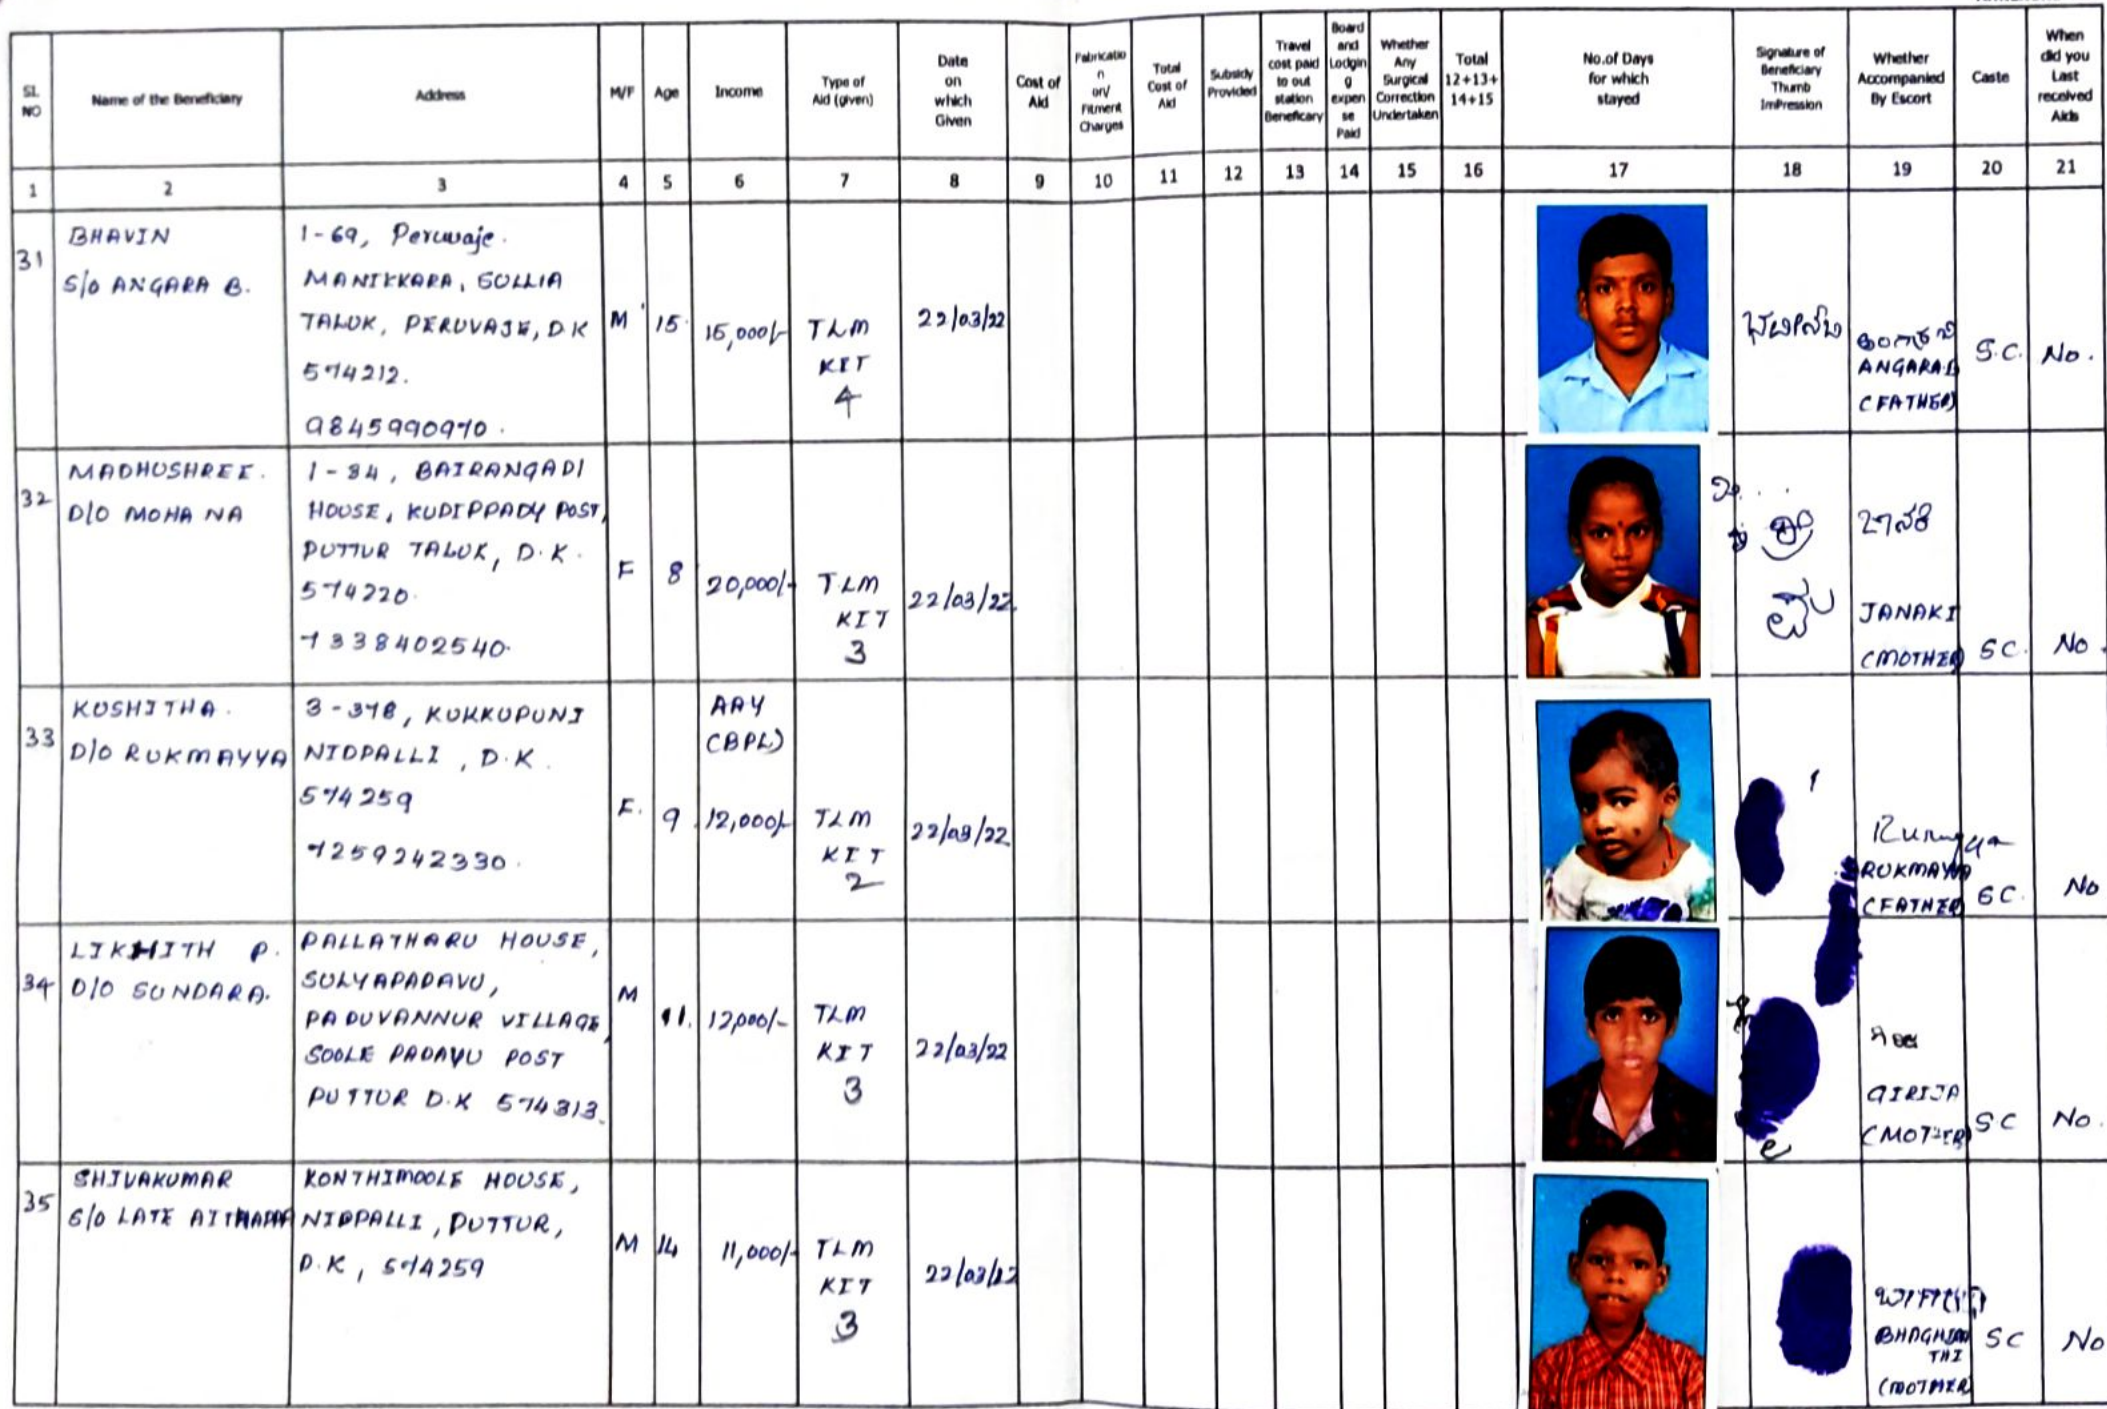 SL NO
Name of the Beneficiary
Address
M/F
Age
Income
Type of
Aid (given)
Date
on
which
Given
Cost of
Aid
Fabricatio
n
on/
Fitment
Charges
Total
Cost of
Aid
Subsidy
Provided
Travel
cost paid
to out
station
Beneficary
Board
and
Lodgin
g
expen
se
Paid
Whether
Any
Surgical
Correction
Undertaken
Total
12+13+
14+15
No.of Days
for which
stayed
Signature of
Beneficiary
Thumb
ImPression
Whether
Accompanied
By Escort
Caste
When
did you
Last
received
Aids
1 2 3 4 5 6 7 8 9 10 11 12 13 14 15 16 17 18 19 20 21
31
BHAVIN
S/o ANGARA B.
1-69, Peruvaje.
MANIKKARA, SULLIA
TALUK, PERUVAJE, D.K
574212.
9845990970.
M
15
15,000/-
TLM
KIT
4
22/03/22
ANGARA.B
(FATHER)
S.C.
No.
32
MADHUSHREE.
D/O MOHANA
1-84, BAIRANGADI
HOUSE, KUDIPPADY POST,
PUTTUR TALUK, D.K.
574220.
7338402540.
F
8
20,000/-
TLM
KIT
3
22/03/22
ಜಾನಕಿ
JANAKI
(MOTHER)
SC.
No.
33
KUSHITHA.
D/O RUKMAYYA
3-378, KUKKUPUNI
NIDPALLI, D.K.
574259
7259242330.
F.
9
AAY
(BPL)
12,000/-
TLM
KIT
2
22/03/22
RUKMAYYA
(FATHER)
SC.
No
34
LIKHITH P.
D/O SUNDARA.
PALLATHARU HOUSE,
SULYAPADAVU,
PADUVANNUR VILLAGE,
SOOLE PADAVU POST
PUTTUR D.K 574313.
M
11.
12,000/-
TLM
KIT
3
22/03/22
GIRIJA
(MOTHER)
SC
No.
35
SHIVAKUMAR
S/O LATE AITHAPPA
KONTHIMOOLE HOUSE,
NIDPALLI, PUTTUR,
D.K, 574259
M
14
11,000/-
TLM
KIT
3
22/03/22
(MOTHER)
SC
No